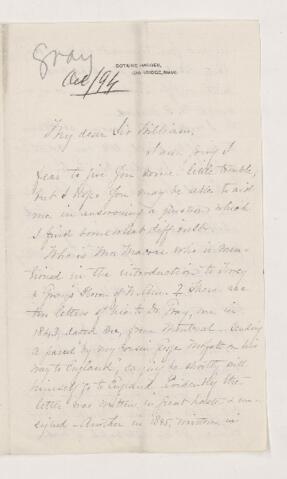 Gray
Oct/94
BOTANIC GARDEN,
CAMBRIDGE, MASS.
My dear Sir William,
I am sorry I
fear to give you some little trouble,
but I hope you may be able to aid
me in answering a question which
I find somewhat difficult.
Who is Mr. who is men-
tioned in the introduction to Torrey
& Gray's Flora of N. Am. ? There are
two letters of his to Dr. Gray, one in
1843, dated from Montreal - sending
a parcel by my cousin on his
way to England, saying he shortly will
himself go to England. Evidently the
letter was written in great haste & un-
signed - Another in 1845, written in